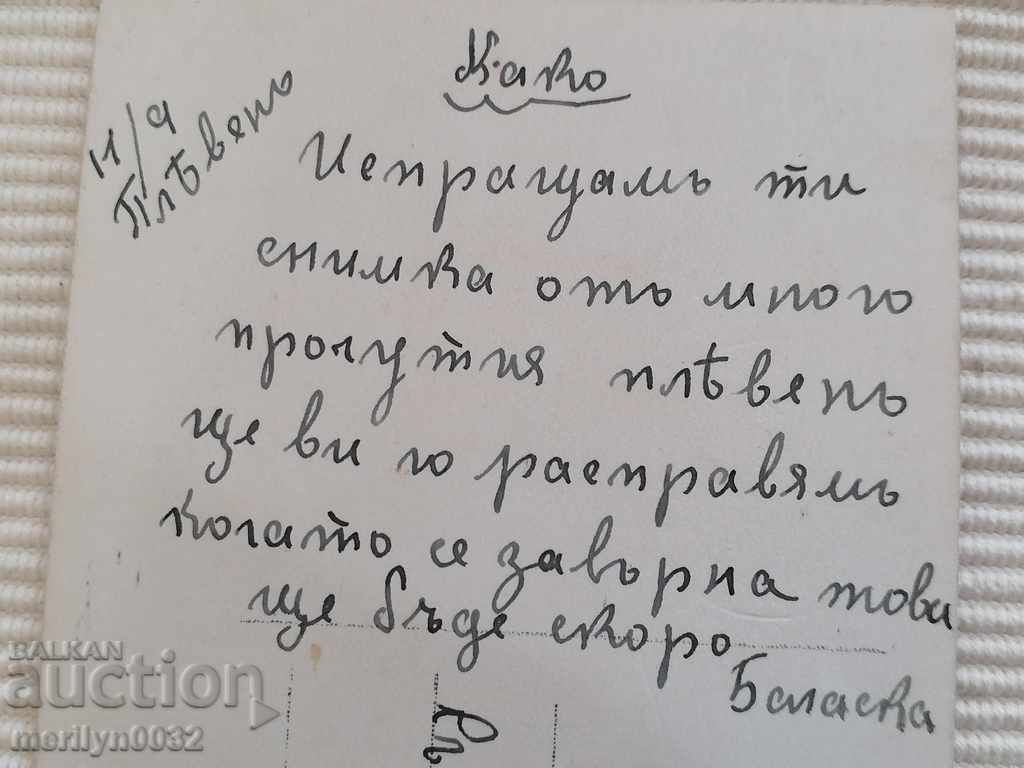 Како
11/9
Плѣвенъ
Испращамъ ти
снимка отъ много
прочутия плѣвенъ
ще ви го расправямъ
когато се завърна това
ще бъде скоро
BALKAN
auction
merilyn0032